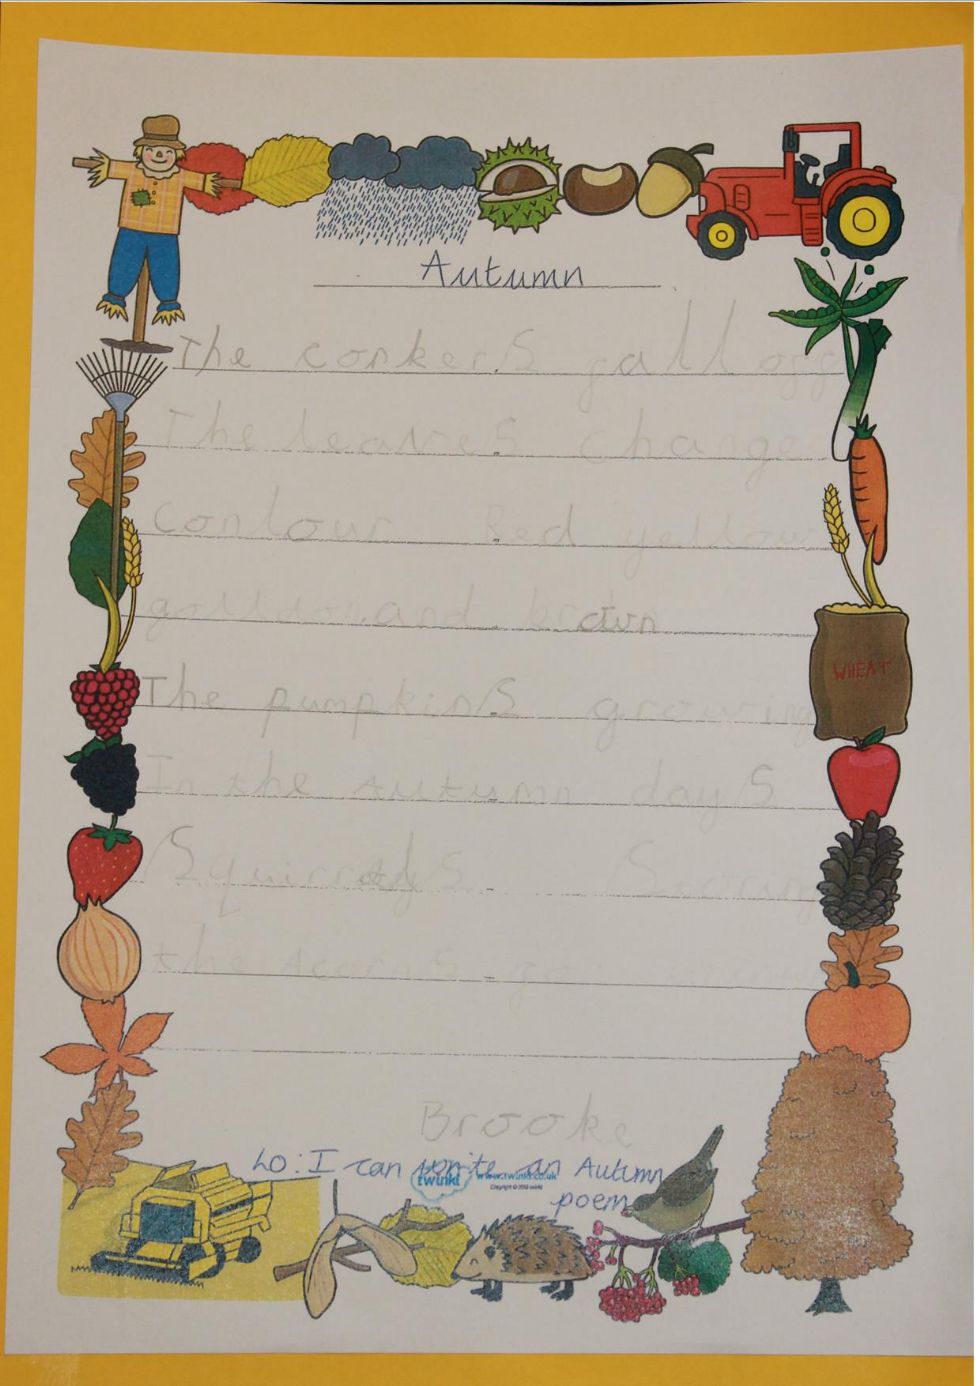 Autumn
The conkers fall off
The leaves change
conlour Red yellow
golldon and brown
WHEAT
The pumpkins growing
In the Autumn days
Squirrels Storing
the Acorns for
Brooke
LO: I can write an Autumn
poem
twinkl www.twinkl.co.uk